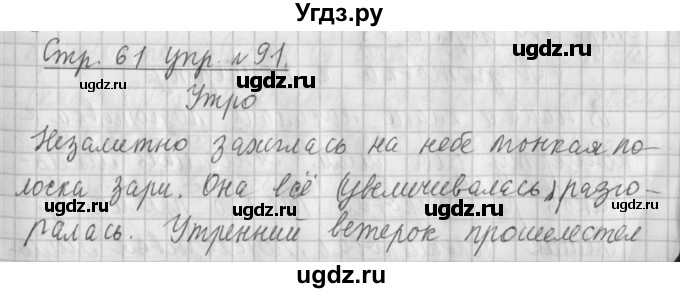 Угдз.ру
Стр. 61 упр. №91.
ugdz.ru ugdz.ru ugdz.ru
Утро
Незаметно зажглась на небе тонкая по-
лоска зари. Она всё увеличивалась, разго-
ugdz.ru ugdz.ru ugdz.ru
ралась. Утренний ветерок прошелестел
ugdz.ru ugdz.ru ugdz.ru